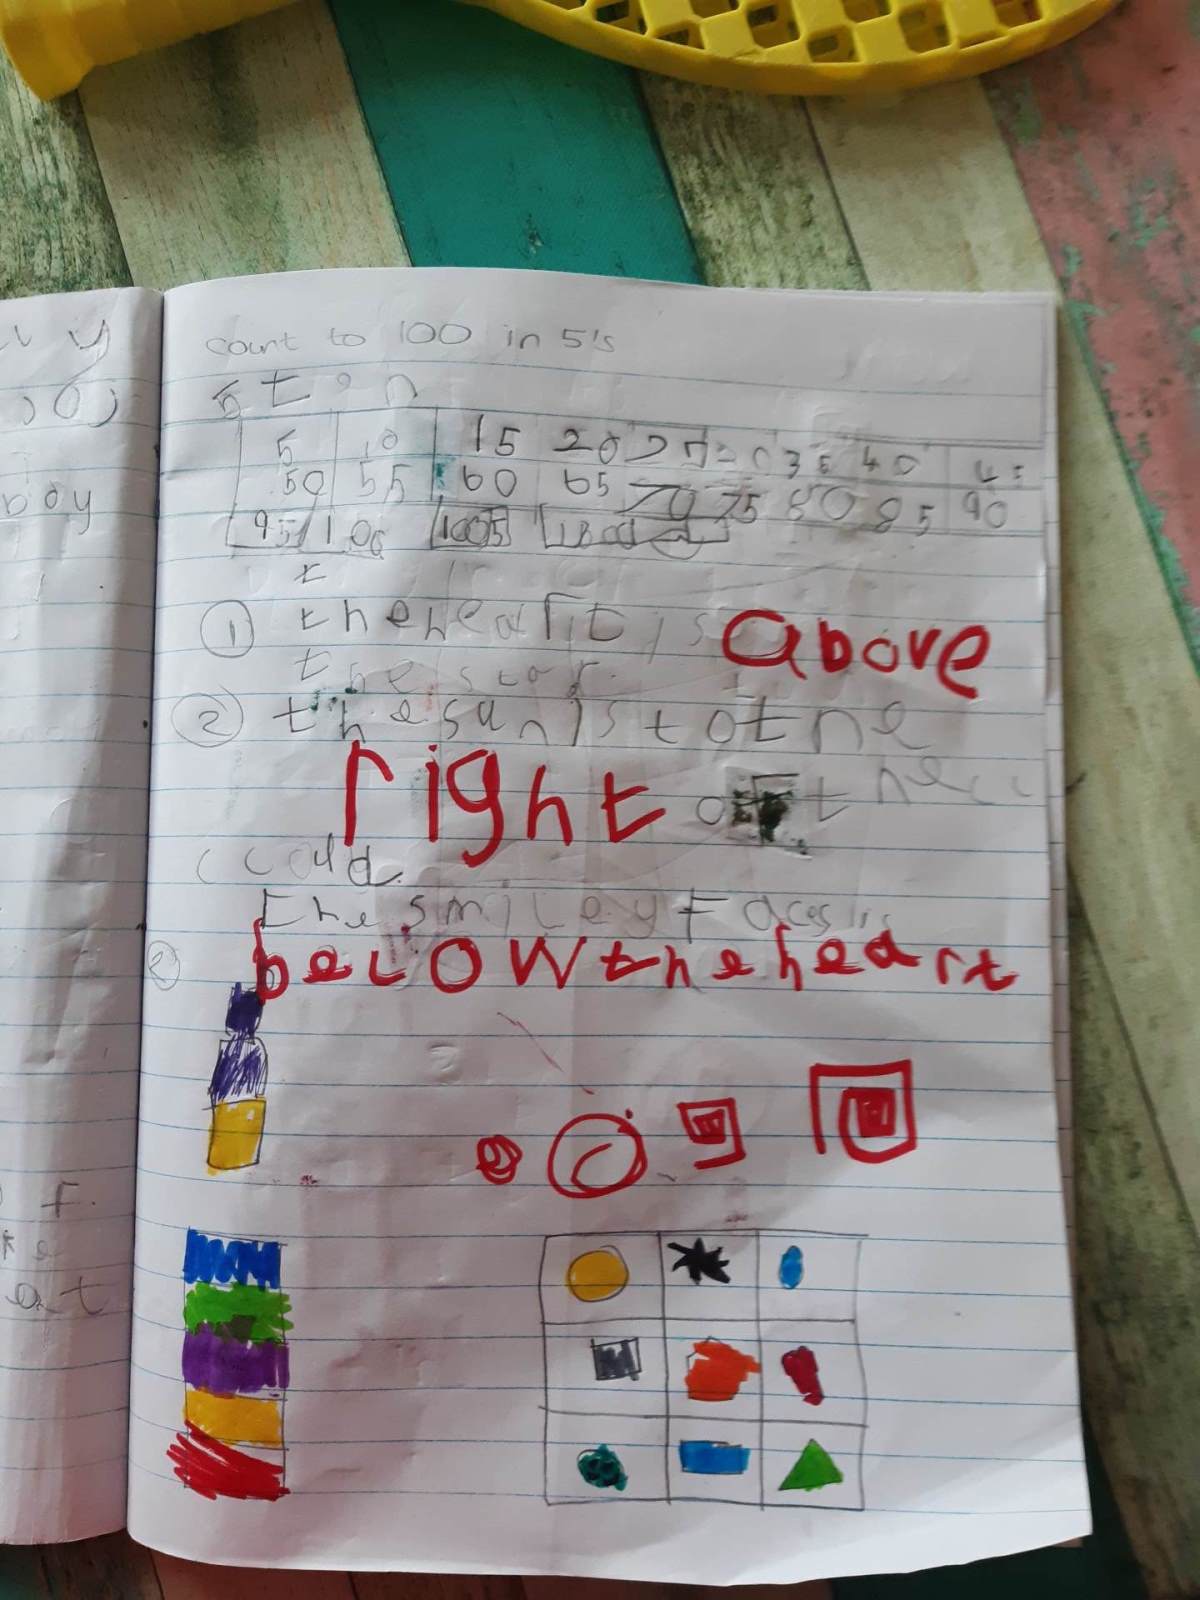 count to 100 in 5's
5 10 15 20 25 30 35 40 45
50 55 60 65 70 75 80 85 90
95 100 1005
t
1 the heart is above
the star.
2 the sun is to the
right of the
could.
the smiley Faces is
below the heart
boy
F.
at